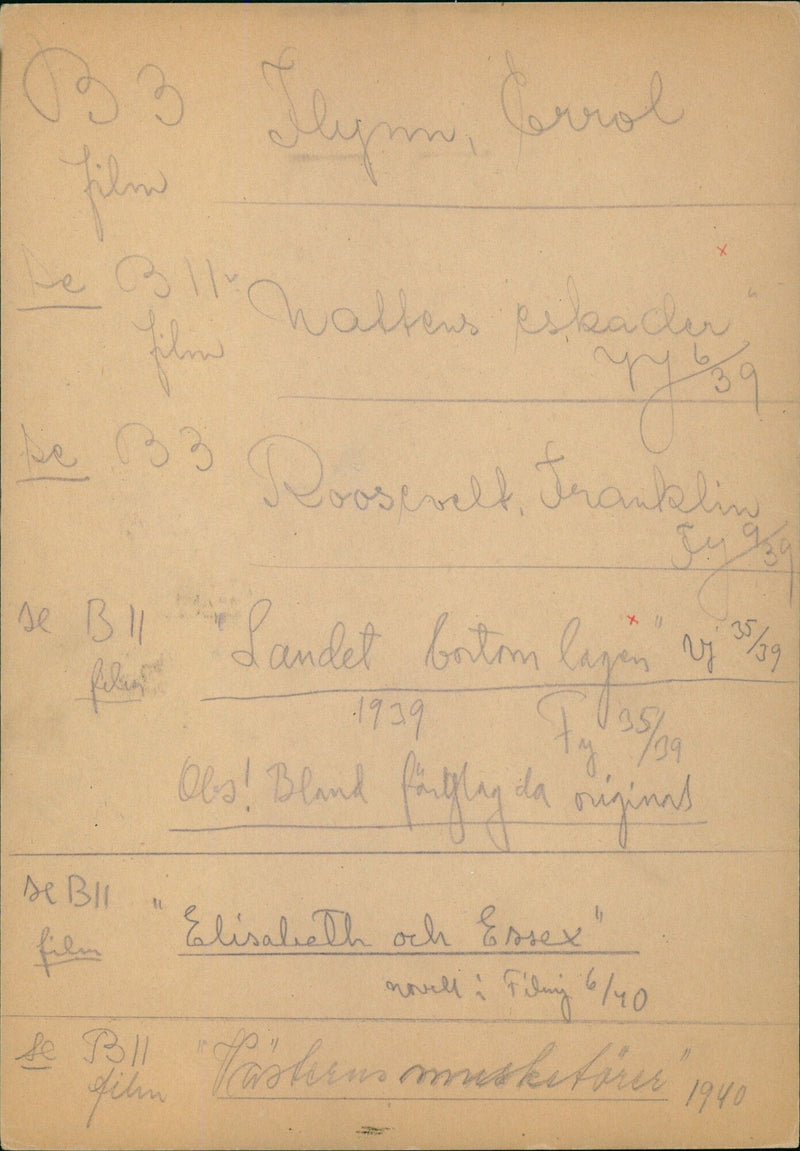 B 3 Flynn, Errol
film
se B 11 "Nattens eskader"
film
VJ 6/39
se B 3 Roosevelt, Franklin
FJ 9/39
se B 11 "Landet bortom lagen" VJ 35/39
film
1939 FJ 35/39
Obs! Bland färglagda original
se B 11 "Elisabeth och Essex"
film
novell i Filmj 6/40
se B 11 "Västerns musketörer" 1940
film